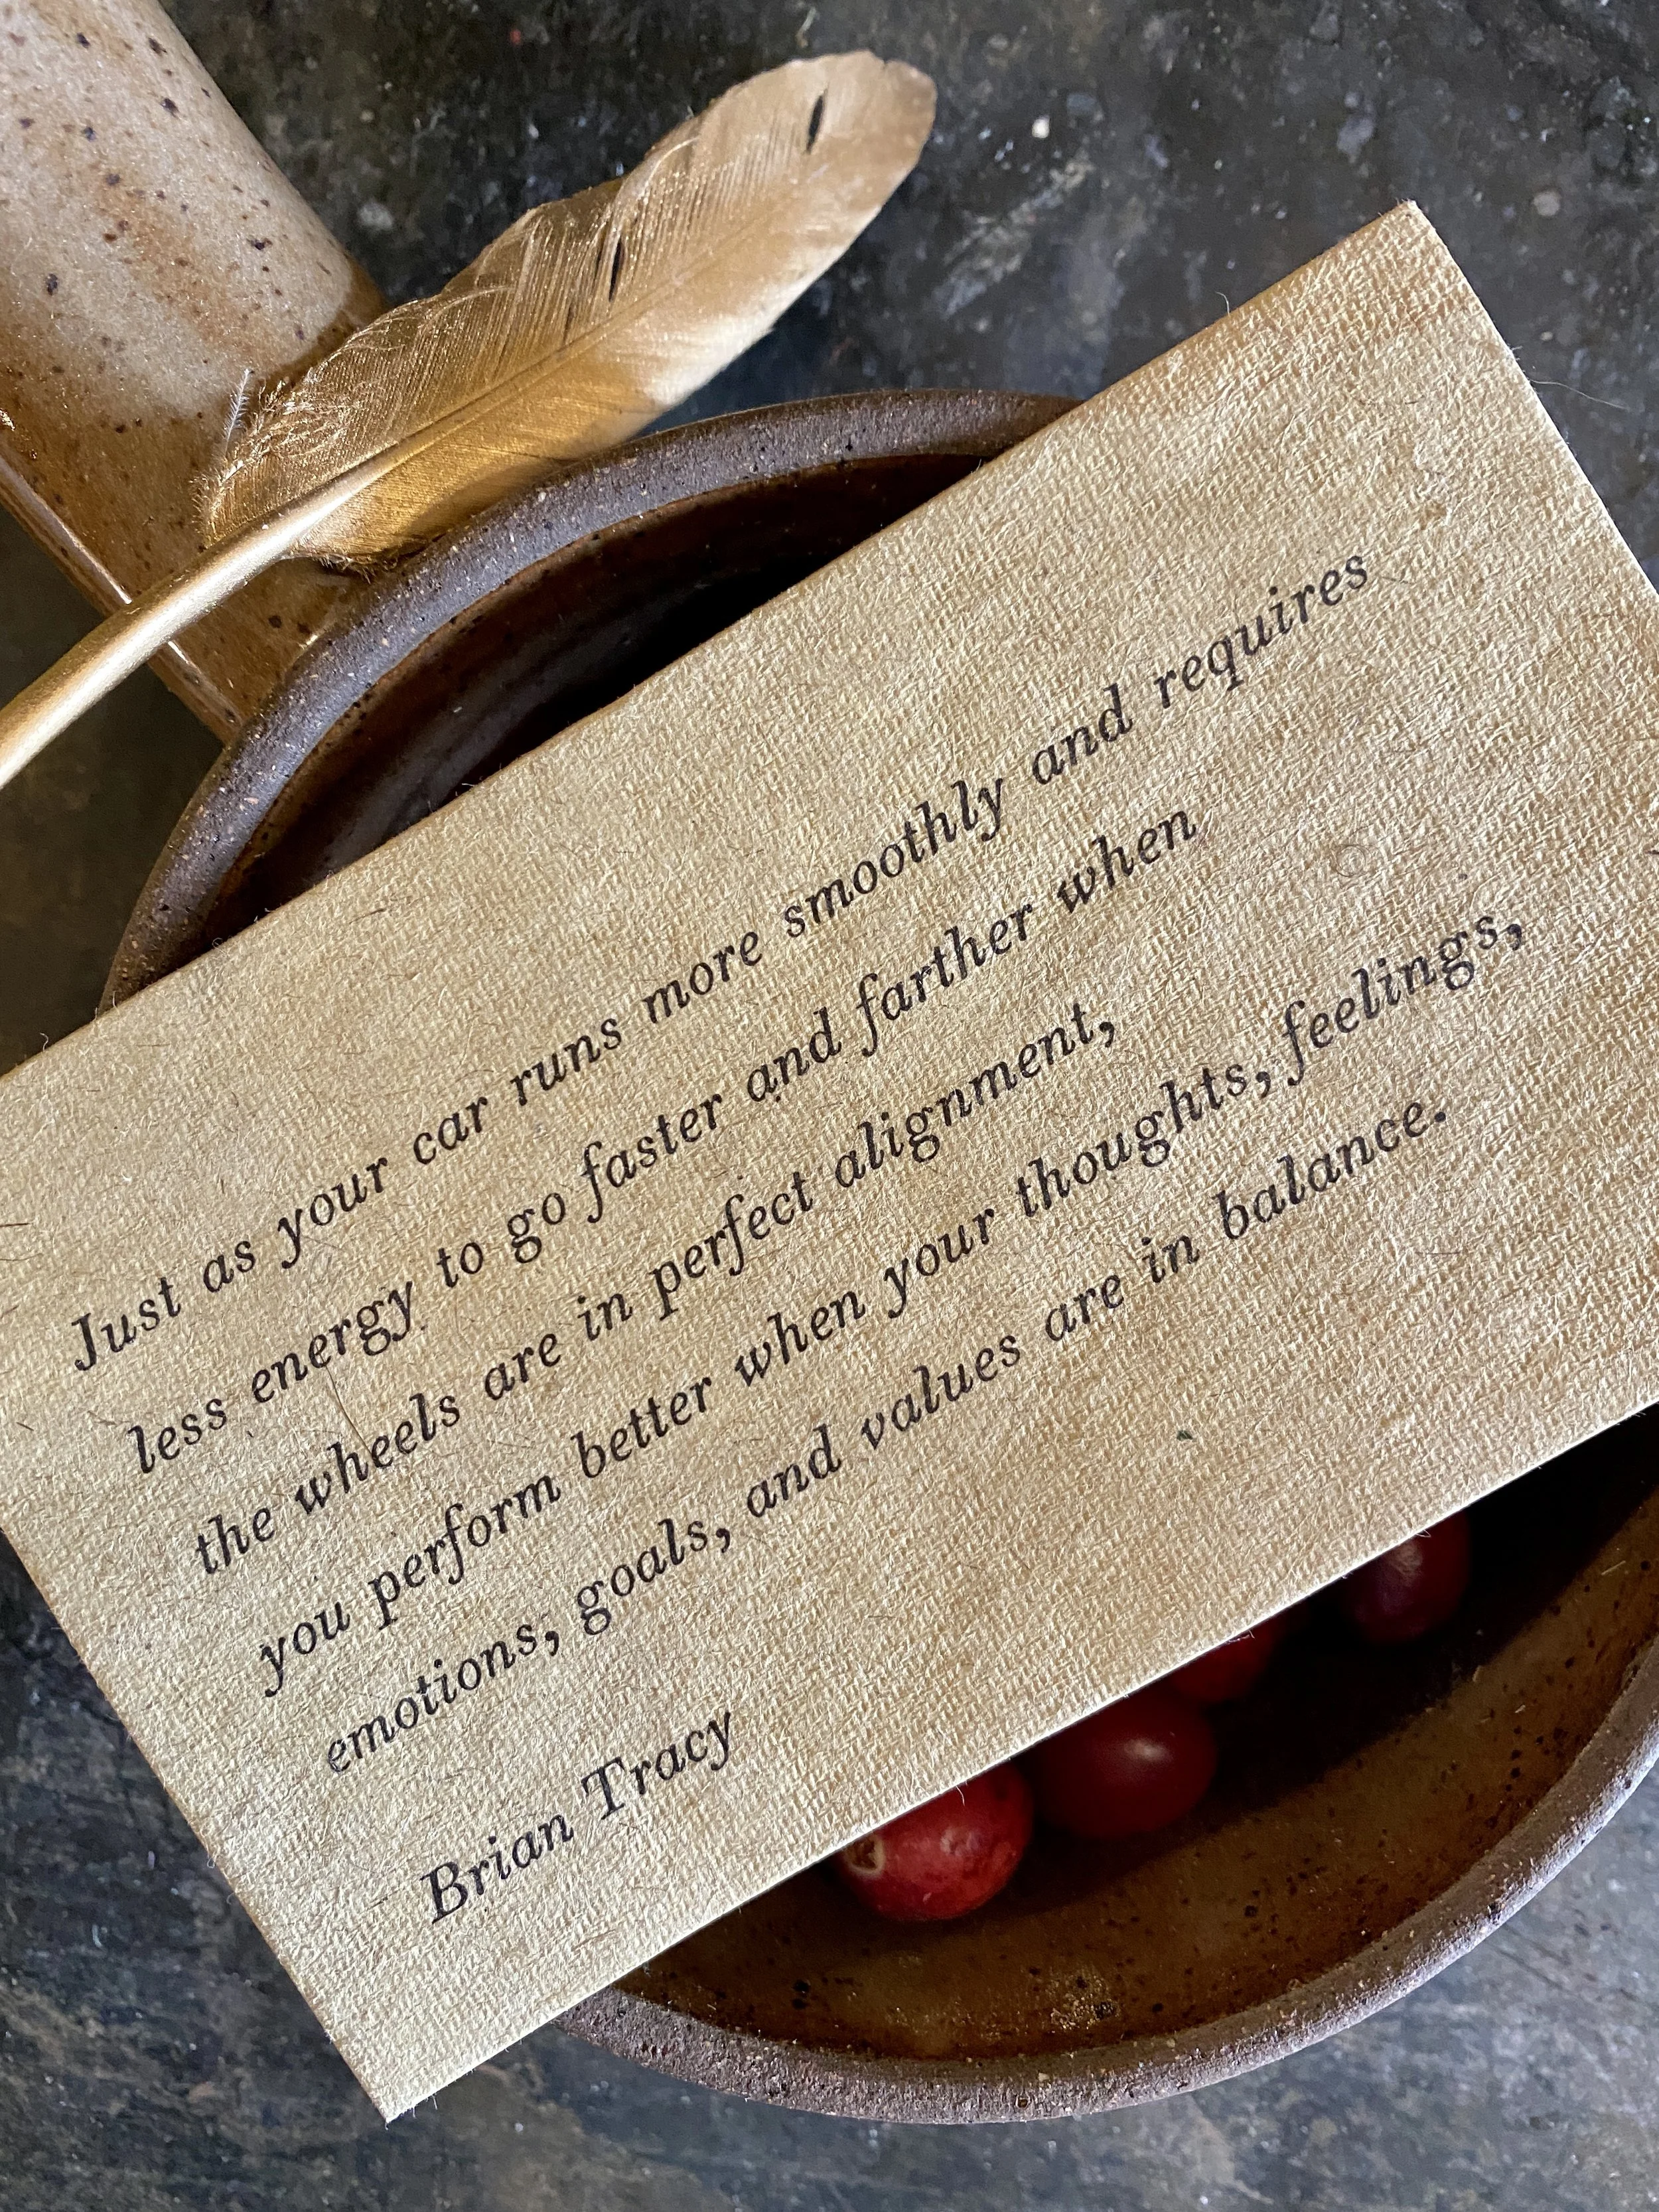 Just as your car runs more smoothly and requires
less energy to go faster and farther when
the wheels are in perfect alignment,
you perform better when your thoughts, feelings,
emotions, goals, and values are in balance.
Brian Tracy